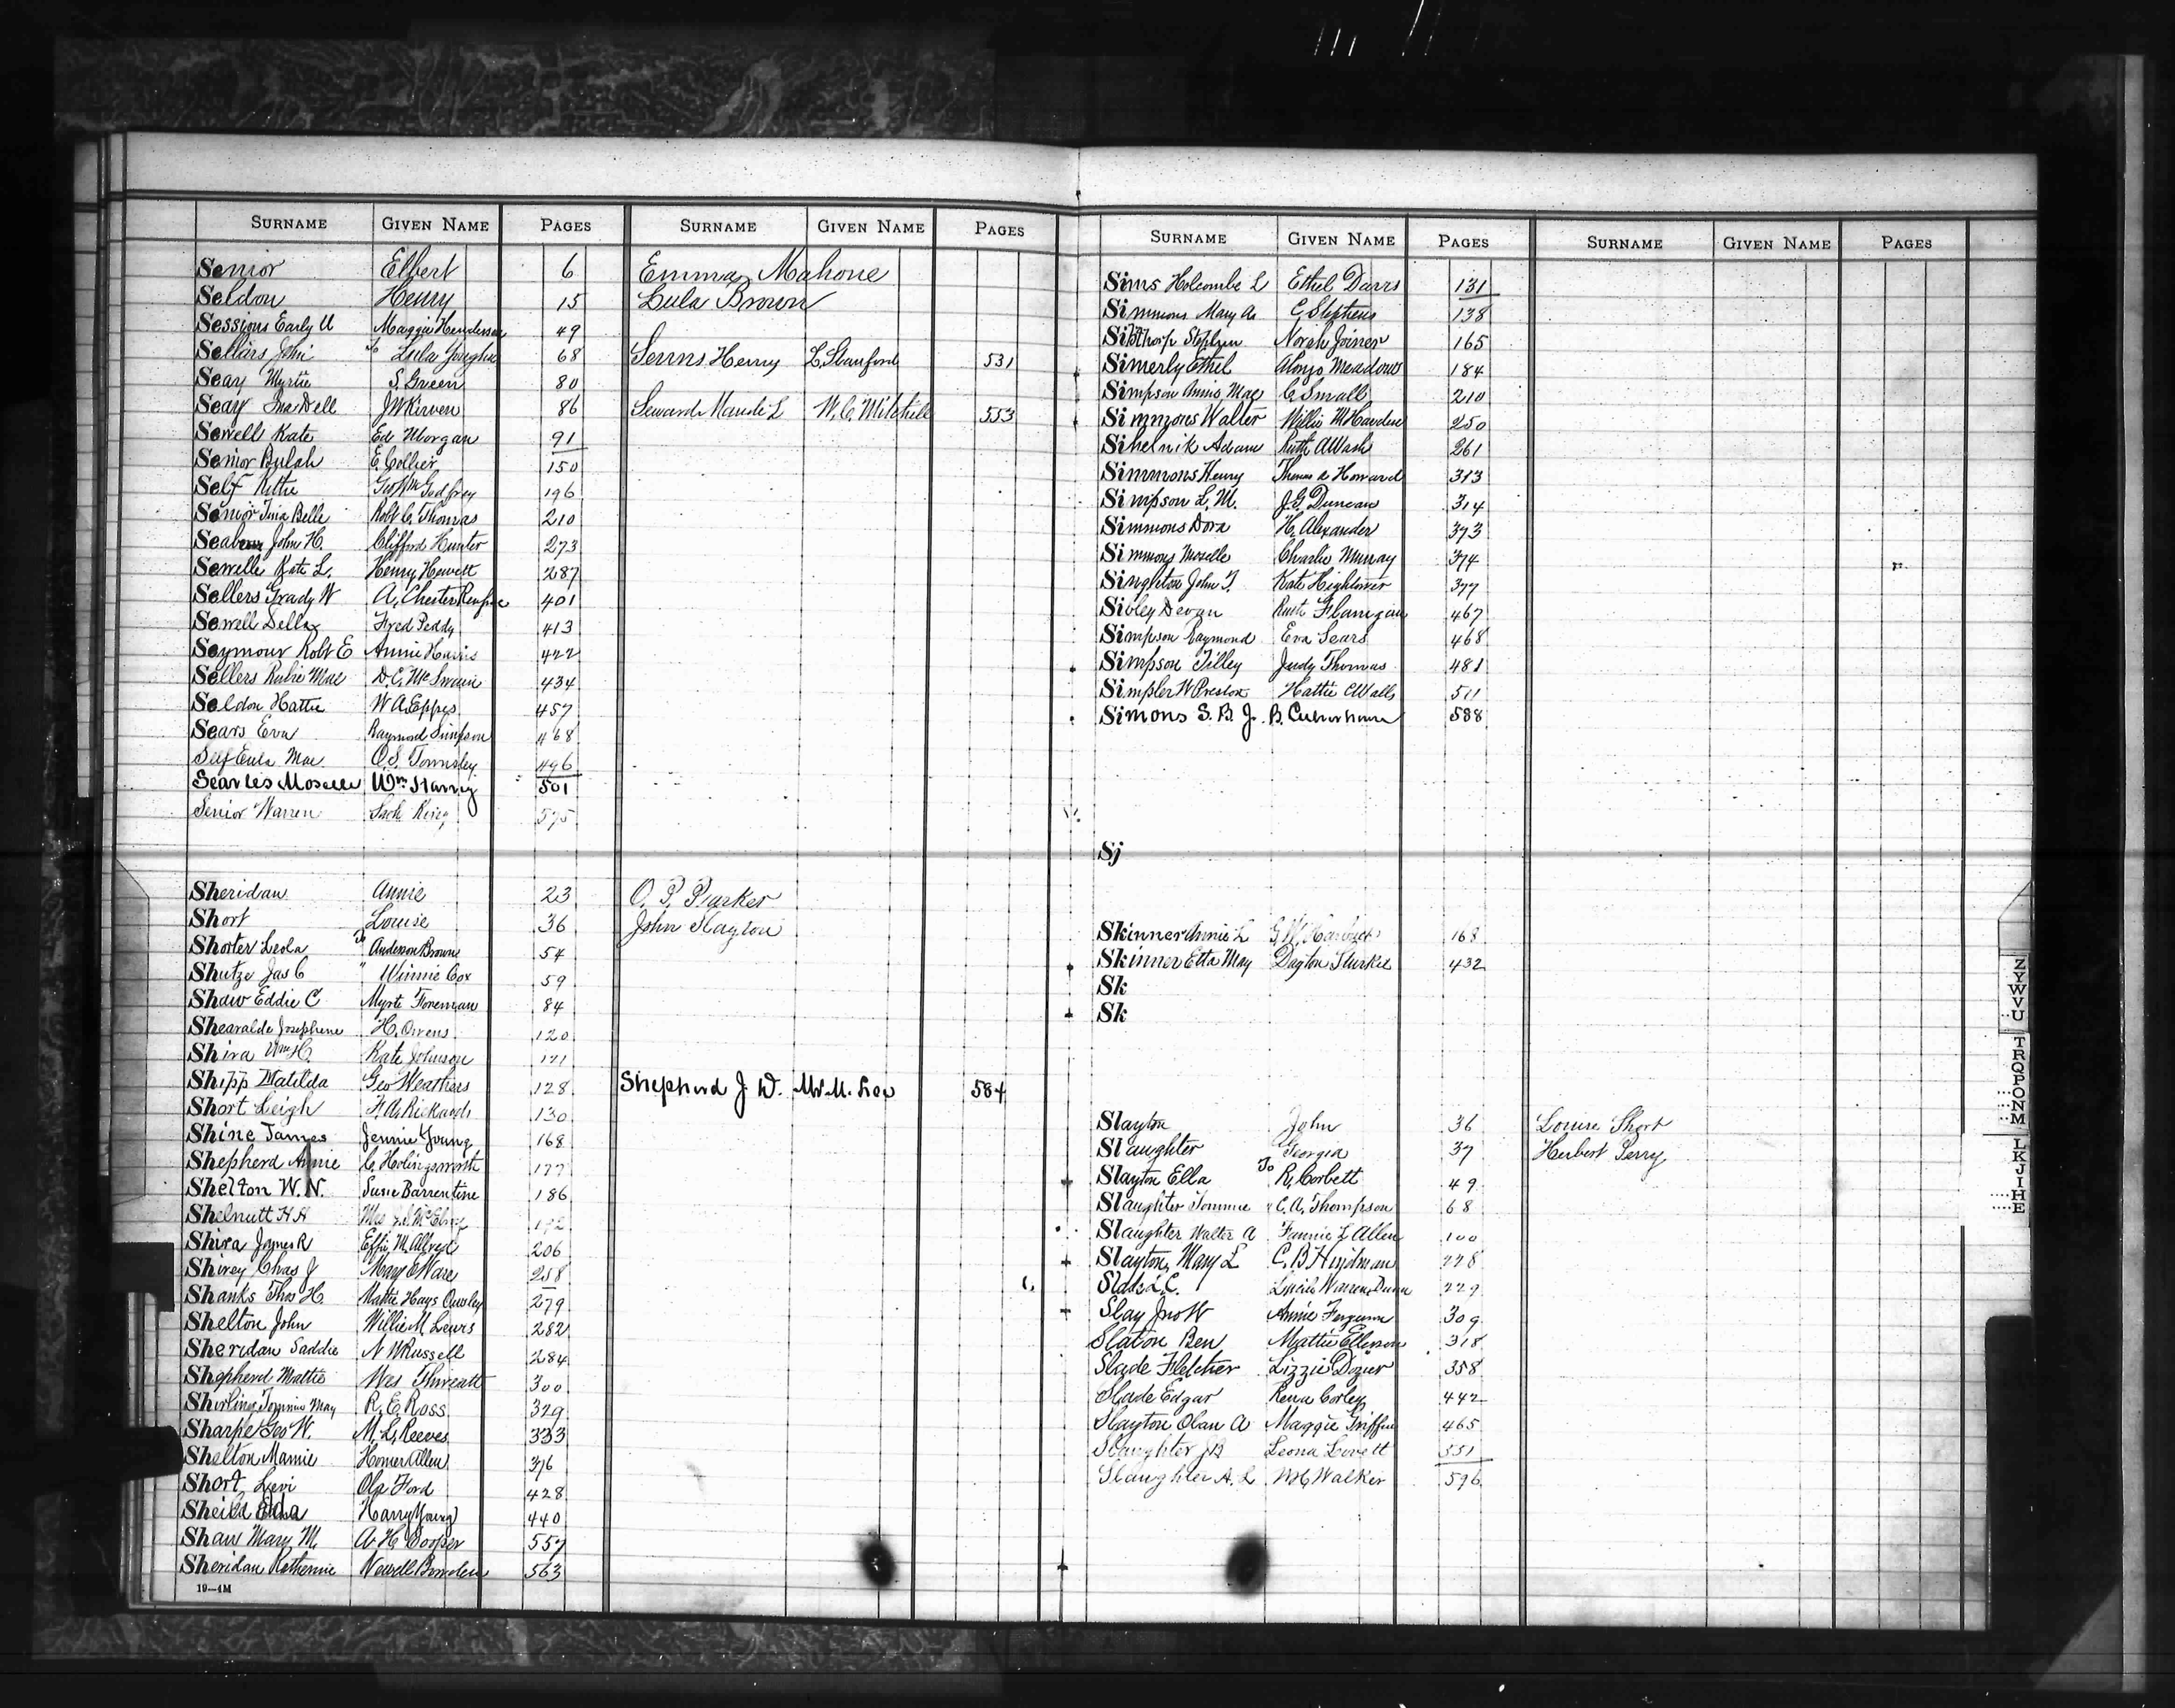 SURNAME GIVEN NAME PAGES SURNAME GIVEN NAME PAGES
Senior Elbert 6 Emma Mahone
Seldon Henry 15 Lula Brown
Sessions Early U Maggie Henderson 49
Sellars John to Lula 68 Henry L. Stanford 531
Seay Myrtie S. Green 80
Seay Ina Dell J W Kirven 86 Seward Maude L W. C. Mitchell 553
Sewell Kate Ed Morgan 91
Senior Bulah E. Collier 150
Self Geo Wm Godfrey 196
Senior Tina Belle Robt C. Thomas 210
John H. Clifford Hunter 273
Sewelle Kate L. Henry Hewett 287
Sellers Grady W A. Chester 401
Sewell Della Fred Peddy 413
Seymour Robt E Annie Harris 422
Sellers Rubie Mae D. C. McSwain 434
Seldon Hattie W A. Eppes 457
Sears Eva Raymond Simpson 468
Self Eula Mae O. S. Townsley 496
Searles Moselle Wm. 501
Senior Warren King 575
Sheridan Annie 23 O. P. Parker
Short Louise 36 John Slayton
Shorter Leola To Anderson Brown 54
Shutze Jas C " Winnie Cox 59
Shaw Eddie C Myrti Foreman 84
Josephine H. Owens 120
Shira Wm H. Kate Johnson 121
Shipp Matilda Geo Weathers 128 Shepherd J. W. M. Lee 584
Short Leigh F. A. 130
Shine James Jennie Young 168
Shepherd Annie C. Holingsworth 177
Shelton W. N. Susie Barrentine 186
Shelnutt H H
Shira James R Effie M. Alfred 206
Shirey Chas J Mary E Ware 258
Shanks Thos H. Mattie Hays Owsley 279
Shelton John Willie M. Lewis 282
Sheridan Saddie N W Russell 284
Shepherd Mattie Wes Threatt 300
Shirling Tommie May R. E. Ross 329
Sharpe Geo W. M. L. Reeves 333
Shelton Mamie Homer Allen 376
Short Levi Ola Ford 428
Sheild Harry Young 440
Shaw Mary M. A. H. Cooper 557
Sheridan Katherine Newell Bowden 563
19—4M
SURNAME GIVEN NAME PAGES SURNAME GIVEN NAME PAGES
Sims Holcombe L Ethel 131
Simmons Mary A. C. Stephens 138
Sibthorp Stephen Norah Joiner 165
Simerly Ethel Alonzo Meadows 184
Simpson Annis Mae C. Small 210
Simmons Walter Willie M 250
Sinelnik Adam Ruth A Wash 261
Simmons Henry Howard 313
Simpson L. M. J. G. Duncan 314
Simmons Dora H. Alexander 373
Simmons Mozelle Charlie Murray 374
Singleton John T. Kate Hightower 377
Sibley Devon Ruth Flannigan 467
Simpson Raymond Eva Sears 468
Simpson Tilley Judy Thomas 481
Simpler W Preston Hattie C Walls 511
Simons S. B. J. B. 588
Sj
Skinner Annie L G. W. 168
Skinner Etta May Dayton Sturkie 432
Sk
Sk
Slayton John 36 Louise Short
Slaughter Georgia 37 Herbert Perry
Slayton Ella To R. Corbett 49
Slaughter Tommie " C. A. Thompson 68
Slaughter Walter A Fannie L Allen 100
Slayton, Mary L C. B Hindman 228
Slade L. C. Lucile Warren Dunn 229
Slay Jno W Annie Ferguson 309
Slaton Ben Mattie Ellerson 318
Slade Fletcher Lizzie Dozier 358
Slade Edgar Rena Corley 442
Slayton Olan A Maggie Griffin 465
Slaughter J B Leona Lovett 551
Slaughter A. L W. C. Walker 596
ZYWVU
TRQPONM
LKJIHE